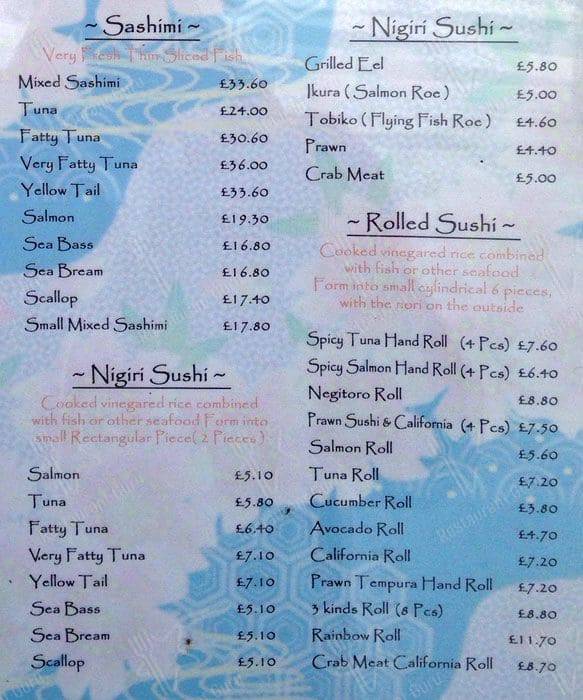 ~ Sashimi ~
Very Fresh Thin Sliced Fish
Mixed Sashimi £33.60
Tuna £24.00
Fatty Tuna £30.60
Very Fatty Tuna £36.00
Yellow Tail £33.60
Salmon £19.30
Sea Bass £16.80
Sea Bream £16.80
Scallop £17.40
Small Mixed Sashimi £17.80
~ Nigiri Sushi ~
Cooked vinegared rice combined
with fish or other seafood Form into
small Rectangular Piece( 2 Pieces )
Salmon £5.10
Tuna £5.80
Fatty Tuna £6.40
Very Fatty Tuna £7.10
Yellow Tail £7.10
Sea Bass £5.10
Sea Bream £5.10
Scallop £5.10
~ Nigiri Sushi ~
Grilled Eel £5.80
Ikura ( Salmon Roe ) £5.00
Tobiko ( Flying Fish Roe ) £4.60
Prawn £4.40
Crab Meat £5.00
~ Rolled Sushi ~
Cooked vinegared rice combined
with fish or other seafood
Form into small cylindrical 6 pieces,
with the nori on the outside
Spicy Tuna Hand Roll (4 Pcs) £7.60
Spicy Salmon Hand Roll (4 Pcs) £6.40
Negitoro Roll £8.80
Prawn Sushi & California (4 Pcs) £7.50
Salmon Roll £5.60
Tuna Roll £7.20
Cucumber Roll £3.80
Avocado Roll £4.70
California Roll £7.20
Prawn Tempura Hand Roll £7.20
3 kinds Roll (8 Pcs) £8.80
Rainbow Roll £11.70
Crab Meat California Roll £8.70